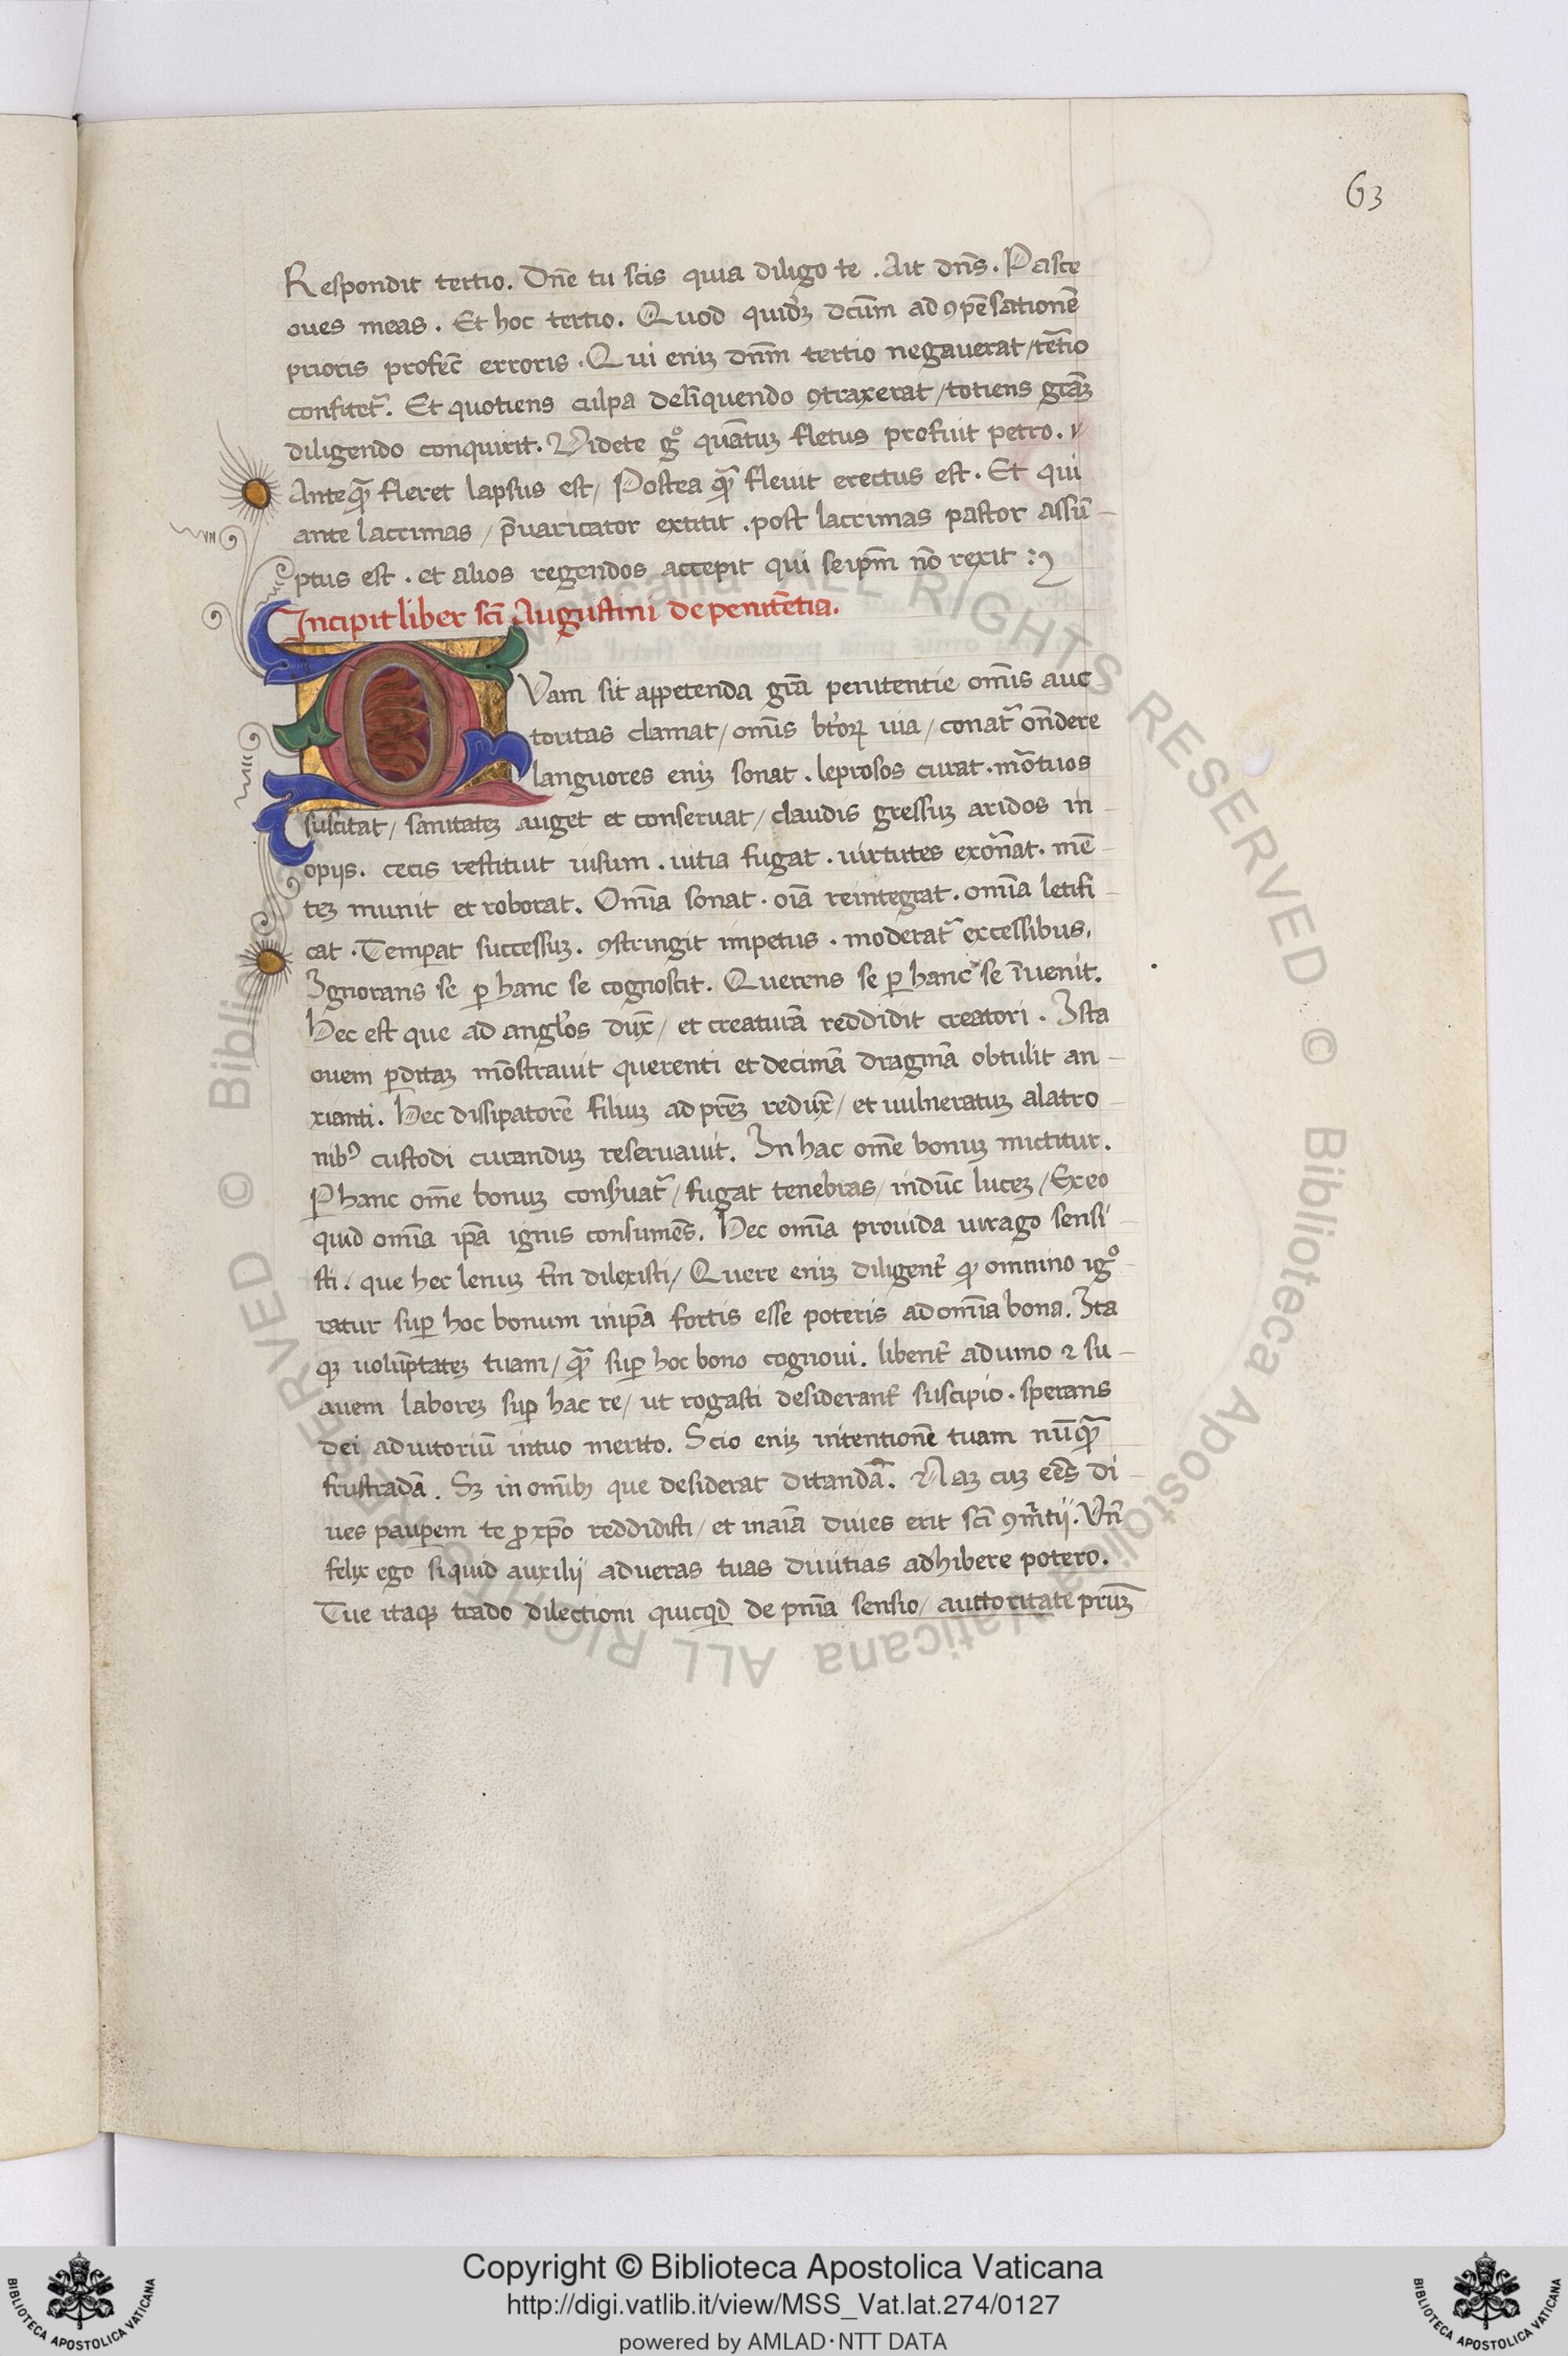 63
Respondit tertio. Dn̄e tu scis quia diligo te . Ait dn̄s . Pasce
oues meas . Et hoc tertio. Quod quidẽ dc̄um ad ꝯpēsationē
prioris profec̄ erroris . Qui eniꝫ dn̄m tertio negauerat / tētio
confitet᷑. Et quotiens culpa delīquendo ꝯtraxerat / totiens grāꝫ
diligendo conquirit. Uidete gͦ quātuꝫ fletus profuit petro.
Anteqꝫ fleret lapsus est / Postea qꝫ fleuit erectus est . Et qui
ante lacrimas / p̄uaricator extitit . post lacrimas pastor assū-
ptus est . et alios regendos accepit qui seipm̄ nō rexit :
Incipit liber sc̄i Augustini de penitētia.
QVam sit appetenda grā penitentie om̄is auc-
toritas clamat / om̄is btōꝝ uia / conat᷑ on̄dere
languores eniꝫ sonat . leprosos curat . mōtuos
suscitat / sanitateꝫ auget et conseruat / claudis gressuꝫ aridos in-
opijs. cecis restituit uisum . uitia fugat . uirtutes exōnat . mē-
teꝫ munit et roborat. Om̄ia sonat . oīa reintegrat . om̄ia letifi-
cat . Temꝑat successuꝫ. ꝯstringit impetus . moderat᷑ excessibus.
Ignorans se ꝑ hanc se cognoscit. Querens se ꝑ hanc se īuenit.
Hec est que ad angl̄os dux̄ / et creaturā reddidit creatori . Ista
ouem ꝑditaꝫ mōstrauit querenti et decimā dragmā obtulit an-
xianti. Hec dissipatorē filiuꝫ ad prēꝫ redux̄ / et uulneratuꝫ alatro-
nibꝰ custodi curanduꝫ reseruauit. In hac om̄e bonuꝫ mictitur.
Ꝑ hanc om̄e bonuꝫ conẜuat᷑ / fugat tenebras / induc̄ luceꝫ / Ex eo
quid om̄ia ip̄a ignis consumēs. Hec om̄ia prouida uirago sensi-
sti. que hec leniuꝫ tm̄ dilexisti / Quere eniꝫ diligent᷑ ꝙ omnino igͦ-
ratur suꝑ hoc bonum inip̄a fortis esse poteris ad om̄ia bona. Ita
qꝫ uolūptateꝫ tuam / qꝫ suꝑ hoc bono cognoui. libent᷑ adunio ⁊ su-
auem laboreꝫ suꝑ hac re / ut rogasti desiderant᷑ suscipio . sperans
dei adiutoriū intuo merito. Scio eniꝫ intentionē tuam nūqꝫ
frustradā . Sꝫ in om̄ibꝫ que desiderat ditandā. Naꝫ cuꝫ eēs di-
ues pauꝑem te ꝓ xp̄o reddidisti / et inaīa diuies erit sc̄i ꝯm̄tij. Vn̄
felix ego si quid auxilij adueras tuas diuitias adhibere potero.
Tue itaqꝫ trado dilectioni quicqd̄ de pnīa sensio / auctoritate prūꝫ
Copyright © Biblioteca Apostolica Vaticana
http://digi.vatlib.it/view/MSS_Vat.lat.274/0127
powered by AMLAD·NTT DATA